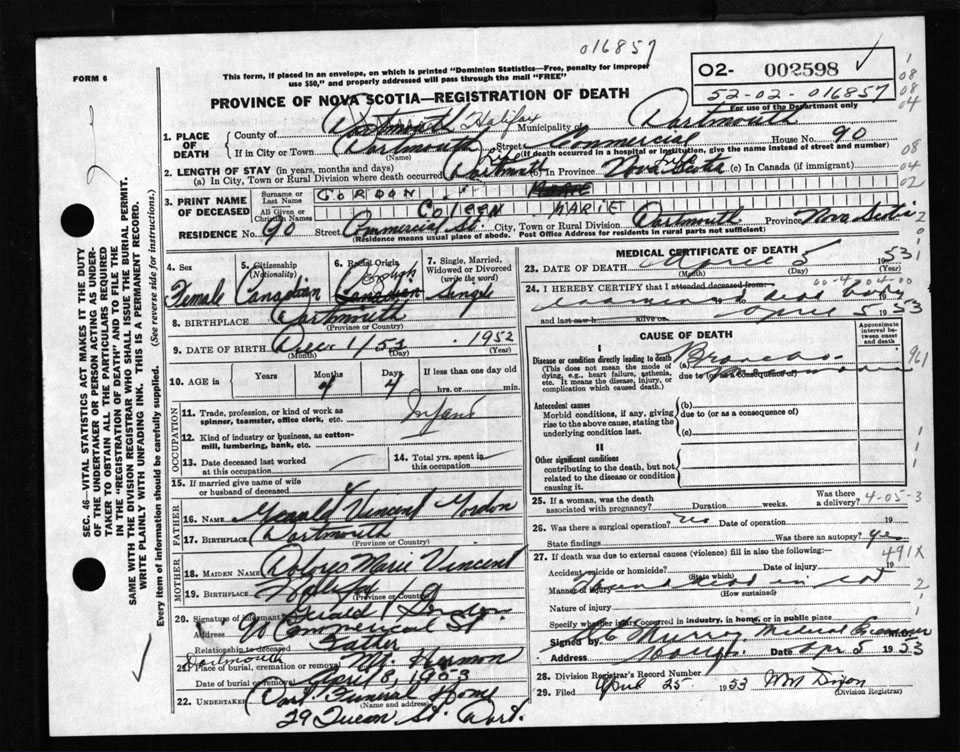 016857
FORM 6
This form, if placed in an envelope, on which is printed "Dominion Statistics—Free, penalty for improper
use $50," and properly addressed will pass through the mail "FREE"
02- 002598
52-02-016857
For use of the Department only
1
08
08
04
PROVINCE OF NOVA SCOTIA—REGISTRATION OF DEATH
1. PLACE OF DEATH
County of Halifax Municipality of Dartmouth
If in City or Town Dartmouth (Name) Street Commercial House No. 90
(If death occurred in a hospital or institution, give the name instead of street and number)
2. LENGTH OF STAY (in years, months and days)
(a) In City, Town or Rural Division where death occurred Dartmouth (b) In Province Nova Scotia (c) In Canada (if immigrant)
08
04
02
3. PRINT NAME OF DECEASED
Surname or Last Name GORDON
All Given or Christian Names COLEEN MARIE
RESIDENCE No. 90 Street Commercial St. City, Town or Rural Division Dartmouth Province Nova Scotia
(Residence means usual place of abode. Post Office Address for residents in rural parts not sufficient)
4. Sex Female
5. Citizenship (Nationality) Canadian
6. Racial Origin Canadian English
7. Single, Married, Widowed or Divorced (write the word) Single
8. BIRTHPLACE Dartmouth
(Province or Country)
9. DATE OF BIRTH Dec 1/52 1952
(Month) (Day) (Year)
10. AGE in Years Months 4 Days 4 If less than one day old hrs. or min.
OCCUPATION
11. Trade, profession, or kind of work as spinner, teamster, office clerk, etc. Infant
12. Kind of industry or business, as cotton-mill, lumbering, bank, etc.
13. Date deceased last worked at this occupation
14. Total yrs. spent in this occupation
15. If married give name of wife or husband of deceased
FATHER
16. NAME Gerald Vincent Gordon
17. BIRTHPLACE Dartmouth
(Province or Country)
MOTHER
18. MAIDEN NAME Dolores Marie Vincent
19. BIRTHPLACE Halifax
(Province or Country)
20. Signature of informant Gerald V Gordon
Address 90 Commercial St.
Relationship to deceased Father
21. Place of burial, cremation or removal Dartmouth Mt. Hermon
Date of burial or removal April 8, 1953
22. UNDERTAKER Dart. Funeral Home
(Name and address)
29 Queen St. Dart.
MEDICAL CERTIFICATE OF DEATH
23. DATE OF DEATH April 5 1953
(Month) (Day) (Year)
24. I HEREBY CERTIFY that I attended deceased from
examined dead body
and last saw h alive on April 5 1953
CAUSE OF DEATH
Approximate interval between onset and death
I
Disease or condition directly leading to death (a) Broncho
(This does not mean the mode of dying, e.g., heart failure, asthenia, etc. It means the disease, injury, or complication which caused death.)
due to (or as a consequence of) Pneumonia
Antecedent causes
Morbid conditions, if any, giving rise to the above cause, stating the underlying condition last.
(b)
due to (or as a consequence of)
(c)
II
Other significant conditions
contributing to the death, but not related to the disease or condition causing it.
25. If a woman, was the death associated with pregnancy? Duration weeks. Was there a delivery?
4-05-3
26. Was there a surgical operation? no Date of operation 19
State findings Was there an autopsy? yes
491X
27. If death was due to external causes (violence) fill in also the following:—
Accident, suicide or homicide? (State which) Date of injury 19
Manner of injury found dead in cot
(How sustained)
Nature of injury
Specify whether injury occurred in industry, in home, or in public place
Signed by Murray, Medical Examiner
Address Date Apr 5 1953
28. Division Registrar's Record Number
29. Filed April 25 1953 WM Dixon
(Division Registrar)
SEC. 46—VITAL STATISTICS ACT MAKES IT THE DUTY
OF THE UNDERTAKER OR PERSON ACTING AS UNDER-
TAKER TO OBTAIN ALL THE PARTICULARS REQUIRED
IN THE "REGISTRATION OF DEATH" AND TO FILE THE
SAME WITH THE DIVISION REGISTRAR WHO SHALL ISSUE THE BURIAL PERMIT.
WRITE PLAINLY WITH UNFADING INK. THIS IS A PERMANENT RECORD.
Every item of information should be carefully supplied. (See reverse side for instructions.)